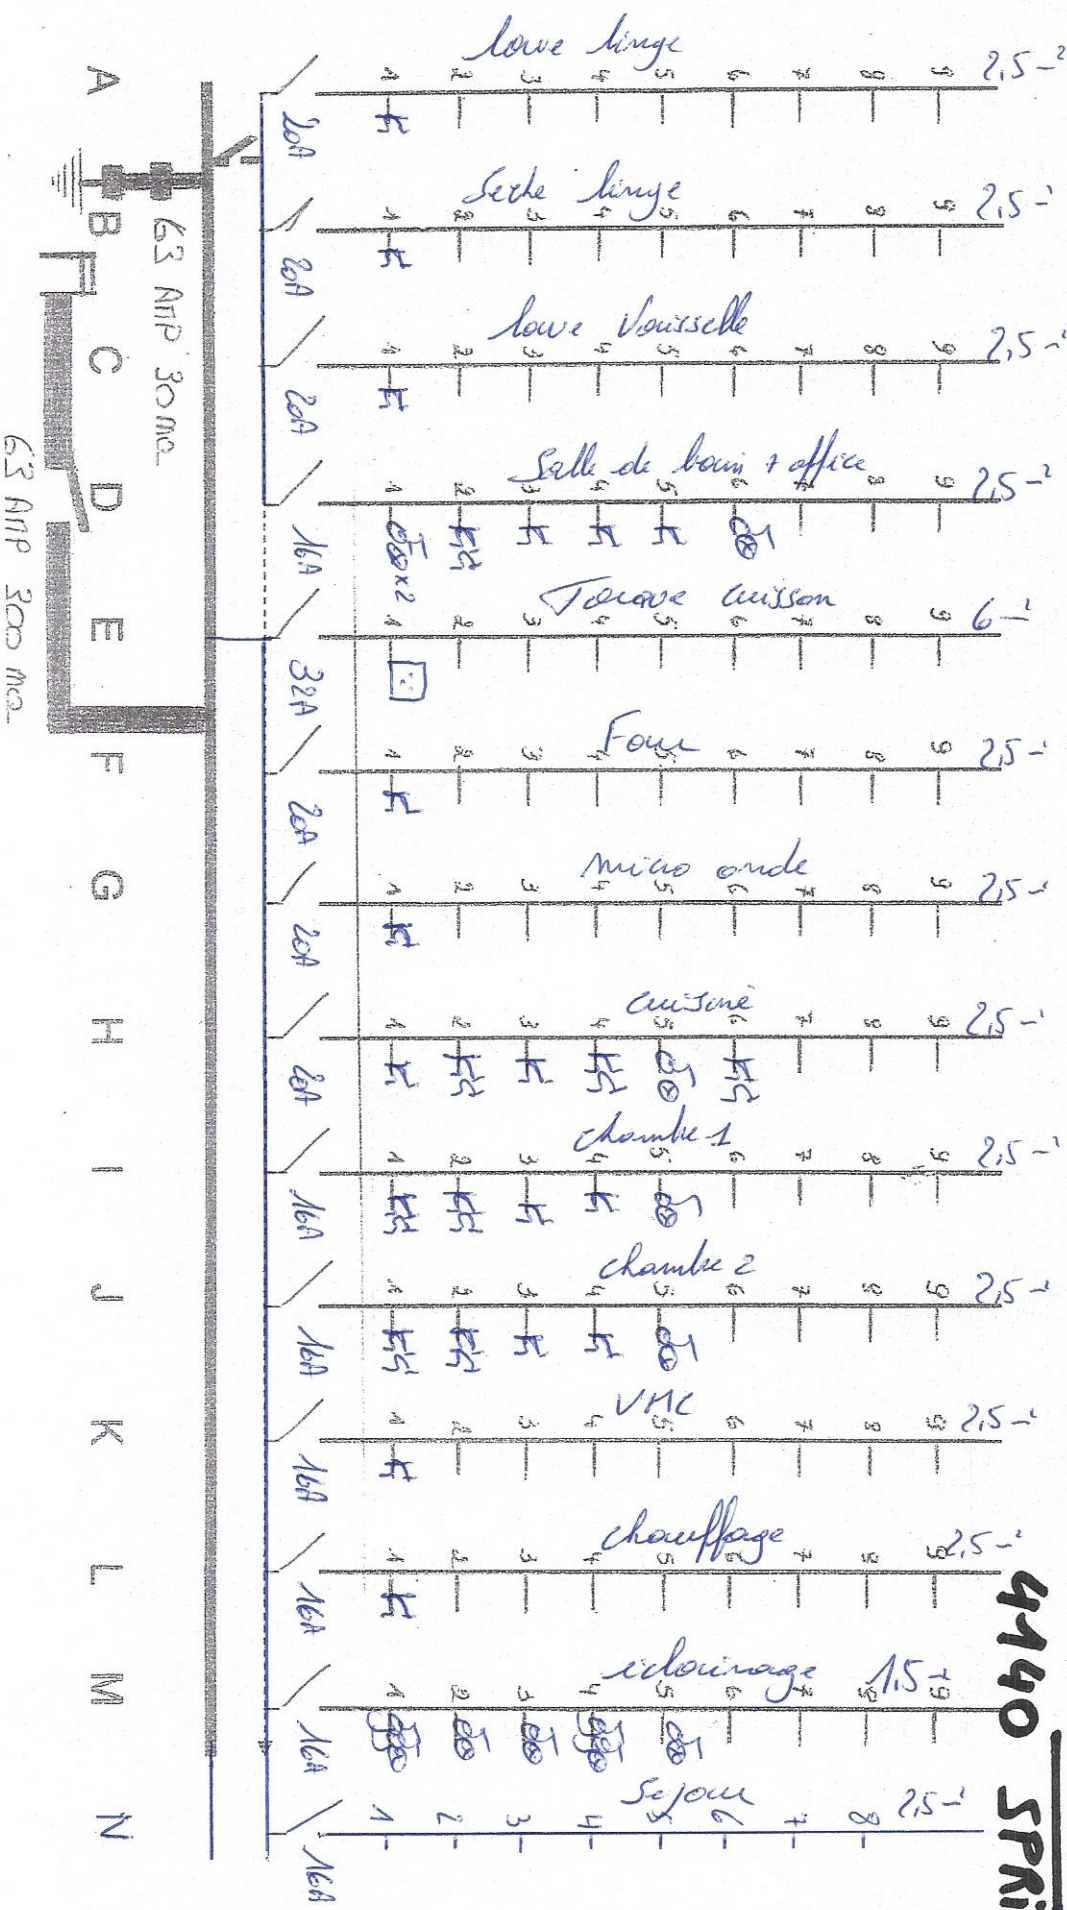 4140 SPRI
A
lave linge
1 2 3 4 5 6 7 8 9
2,5-²
20A
B
Seche linge
1 2 3 4 5 6 7 8 9
2,5-²
20A
C
lave Vaisselle
1 2 3 4 5 6 7 8 9
2,5-²
20A
D
Salle de bain + office
1 2 3 4 5 6 7 8 9
2,5-²
x2
16A
E
cuisson
1 2 3 4 5 6 7 8 9
6-²
32A
F
Four
1 2 3 4 5 6 7 8 9
2,5-²
20A
G
micro onde
1 2 3 4 5 6 7 8 9
2,5-²
20A
H
cuisine
1 2 3 4 5 6 7 8 9
2,5-²
20A
I
chambre 1
1 2 3 4 5 6 7 8 9
2,5-²
16A
J
chambre 2
1 2 3 4 5 6 7 8 9
2,5-²
16A
K
VMC
1 2 3 4 5 6 7 8 9
2,5-²
16A
L
chauffage
1 2 3 4 5 6 7 8 9
2,5-²
16A
M
éclairage
1 2 3 4 5 6 7 8 9
1,5-²
16A
N
Sejour
1 2 3 4 5 6 7 8
2,5-²
16A
63 AMP 30 ma
63 AMP 300 ma